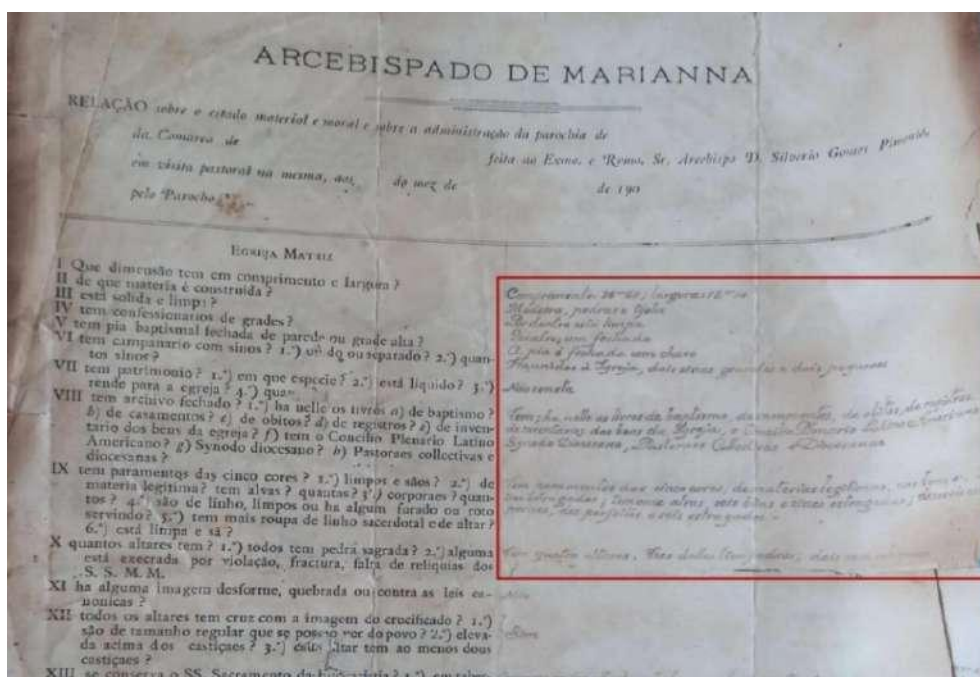 ARCEBISPADO DE MARIANNA
RELAÇÃO sobre o estado material e moral e sobre a administração da parochia de
da Comarca de feita ao Exmo. e Revmo. Sr. Arcebispo D. Silverio Gomes Pimenta
em visita pastoral na mesma, aos do mez de de 190
pelo Parocho
EGREJA MATRIZ
I Que dimensão tem em comprimento e largura ?
II de que materia é construida ?
III está solida e limpa ?
IV tem confessionarios de grades ?
V tem pia baptismal fechada de parede ou grade alta ?
VI tem campanario com sinos ? 1.º) separado ? 2.º) quan-
tos sinos ?
VII tem patrimonio ? 1.º) em que especie ? 2.º) está liquido ? 3.º)
rende para a egreja ? 4.º)
VIII tem archivo fechado ? 1.º) ha nelle os livros a) de baptismo ?
b) de casamentos ? c) de obitos ? d) de registros ? e) de inven-
tario dos bens da egreja ? f) tem o Concilio Plenario Latino
Americano ? g) Synodo diocesano ? h) Pastoraes collectivas e
diocesanas ?
IX tem paramentos das cinco cores ? 1.º) limpos e sãos ? 2.º) de
materia legitima ? tem alvas ? quantas ? 3.º) corporaes ? quan-
tos ? 4.º) são de linho, limpos ou ha algum furado ou roto
servindo ? 5.º) tem mais roupa de linho sacerdotal e de altar ?
6.º) está limpa e sã ?
X quantos altares tem ? 1.º) todos tem pedra sagrada ? 2.º) alguma
está execrada por violação, fractura, falta de reliquias dos
S. S. M. M.
XI ha alguma imagem desforme, quebrada ou contra as leis ca-
nonicas ?
XII todos os altares tem cruz com a imagem do crucificado ? 1.º)
são de tamanho regular que se possão ver do povo ? 2.º) eleva-
da acima dos castiçaes ? 3.º) altar tem ao menos dous
castiçaes ?
XIII se conserva o SS. Sacramento da
Comprimento largura
Madeira, pedra e tijolo
Por dentro está limpa
A pia é fechada com chave
Igreja, dois sinos grandes e dois pequenos
Não
Tem; ha nelle os livros de baptismo, de casamentos, de obitos, de registros,
de inventarios dos bens da Igreja, o Concilio Plenario Latino Americano
Synodo Diocesano, Pastoraes Collectivas e Diocesanas
Tem paramentos das cinco cores, de materias legitimas,
estragados
Tem quatro altares, tres
Não